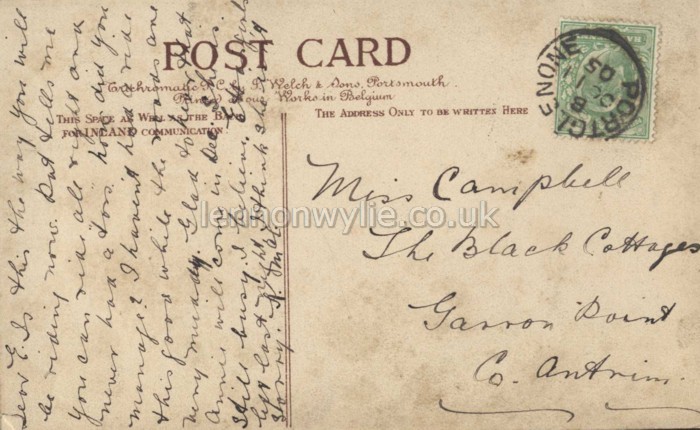 POST CARD
Chromatic P.C. F. G. Welch & Sons, Portsmouth
Printed at our Works in Belgium
THIS SPACE AS WELL AS THE BACK
FOR INLAND COMMUNICATION
THE ADDRESS ONLY TO BE WRITTEN HERE
PORTGLENONE
OC 11
05
Miss Campbell
The Black Cottages
Garron Point
Co. Antrim.
Dear E. Is this the way you will
be riding now. Pat tells me
you can ride all right and
never had a toss. how did you
manage? I haven't had a ride
this good while the roads are
very muddy. Glad to hear that
Annie will come in Dec.
still busy I believe.
left last night. I think she is
sorry.
lennonwylie.co.uk